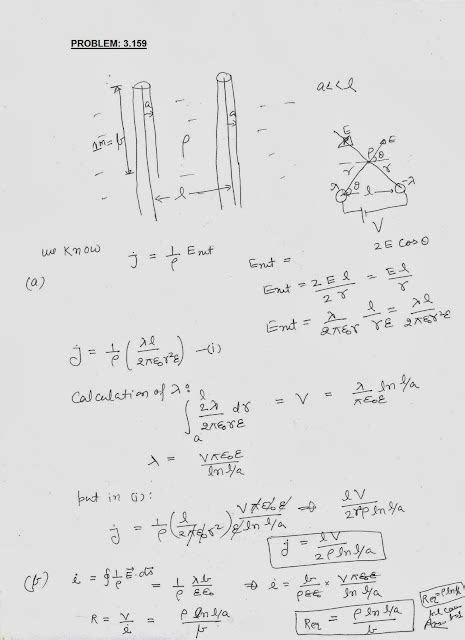 PROBLEM: 3.159
a<<l
1m=b
a
a
ρ
l
E
ρ
E
θ
r
r
λ
θ
l
-λ
V
2E cosθ
we know j = 1/ρ Enet
Enet =
(a)
Enet = 2E l / 2r = El / r
Enet = λ / 2πε₀r l / rε = λl / 2πε₀r²ε
j = 1/ρ (λl / 2πε₀r²ε) —(i)
Calculation of λ:
∫ₐˡ 2λ / 2πε₀rε dr = V = λ / πε₀ε ln l/a
λ = Vπε₀ε / ln l/a
put in (i):
j = 1/ρ (l / 2πε₀r²) Vπε₀ε / ε ln l/a ⇒ lV / 2r²ρ ln l/a
j = lV / 2ρ ln l/a
(b) i = ∮ 1/ρ E⃗·ds⃗ = 1/ρ λb / εε₀ ⇒ i = b / ρεε₀ × Vπεε₀ / ln l/a
R = V / i = ρ ln l/a / b
Req = ρ ln l/a / b